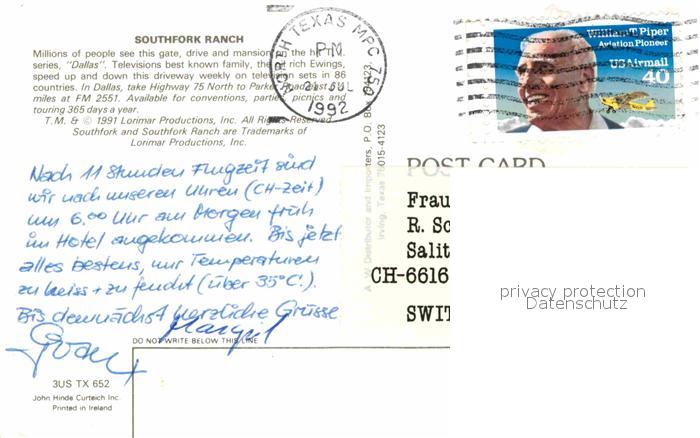 SOUTHFORK RANCH
Millions of people see this gate, drive and mansion in the hit
series, "Dallas". Televisions best known family, the rich Ewings,
speed up and down this driveway weekly on television sets in 86
countries. In Dallas, take Highway 75 North to Parker Road
miles at FM 2551. Available for conventions, parties, picnics and
touring 365 days a year.
T.M. & © 1991 Lorimar Productions, Inc. All Rights Reserved
Southfork and Southfork Ranch are Trademarks of
Lorimar Productions, Inc.
NORTH TEXAS MPC
PM
21 JUL
1992
William T. Piper
Aviation Pioneer
USAirmail
40
Nach 11 Stunden Flugzeit sind
wir nach unseren Uhren (CH-Zeit)
um 6.00 Uhr am Morgen früh
im Hotel angekommen. Bis jetzt
alles bestens, nur Temperaturen
zu heiss + zu feucht (über 35°C.).
Bis demnächst herzliche Grüsse
Margrit
Distributor and Importers, P.O. Box
Irving, Texas 75015-4123
POST CARD
Frau
R. Sc
Salit
CH-6616
SWIT
privacy protection
Datenschutz
DO NOT WRITE BELOW THIS LINE
3US TX 652
John Hinde Curteich Inc.
Printed in Ireland